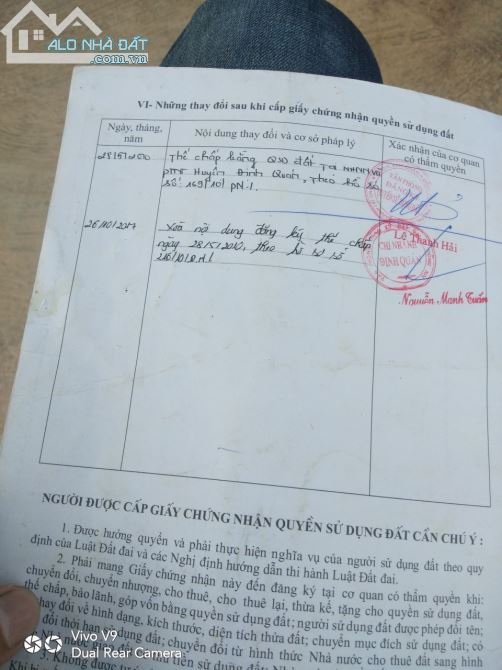 ALO NHÀ ĐẤT
VI- Những thay đổi sau khi cấp giấy chứng nhận quyền sử dụng đất
Ngày, tháng, năm
Nội dung thay đổi và cơ sở pháp lý
Xác nhận của cơ quan có thẩm quyền
28/5/2010
Thế chấp bằng QSD đất Tại NHNN và
PTNT Huyện Định Quán, theo hồ sơ
số: 169/10/ PN.1.
Lê Thanh Hải
26/10/2017
Xoá nội dung đăng ký thế chấp
ngày 28/5/2010, theo hồ sơ số
CHI NHÁNH
ĐỊNH QUÁN
Nguyễn Mạnh Tuấn
NGƯỜI ĐƯỢC CẤP GIẤY CHỨNG NHẬN QUYỀN SỬ DỤNG ĐẤT CẦN CHÚ Ý :
1. Được hưởng quyền và phải thực hiện nghĩa vụ của người sử dụng đất theo quy
định của Luật Đất đai và các Nghị định hướng dẫn thi hành Luật Đất đai.
2. Phải mang Giấy chứng nhận này đến đăng ký tại cơ quan có thẩm quyền khi:
chuyển đổi, chuyển nhượng, cho thuê, cho thuê lại, thừa kế, tặng cho quyền sử dụng đất,
thế chấp, bảo lãnh, góp vốn bằng quyền sử dụng đất; người sử dụng đất được phép đổi tên;
thay đổi về hình dạng, kích thước, diện tích thửa đất; chuyển mục đích sử dụng đất; có
đổi thời hạn sử dụng đất; chuyển đổi từ hình thức Nhà nước cho thuê đất sang hình
Vivo V9
Dual Rear Camera